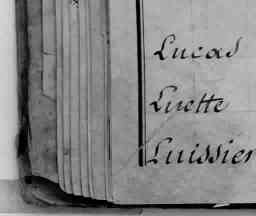 Lucas
Luette
Luissier